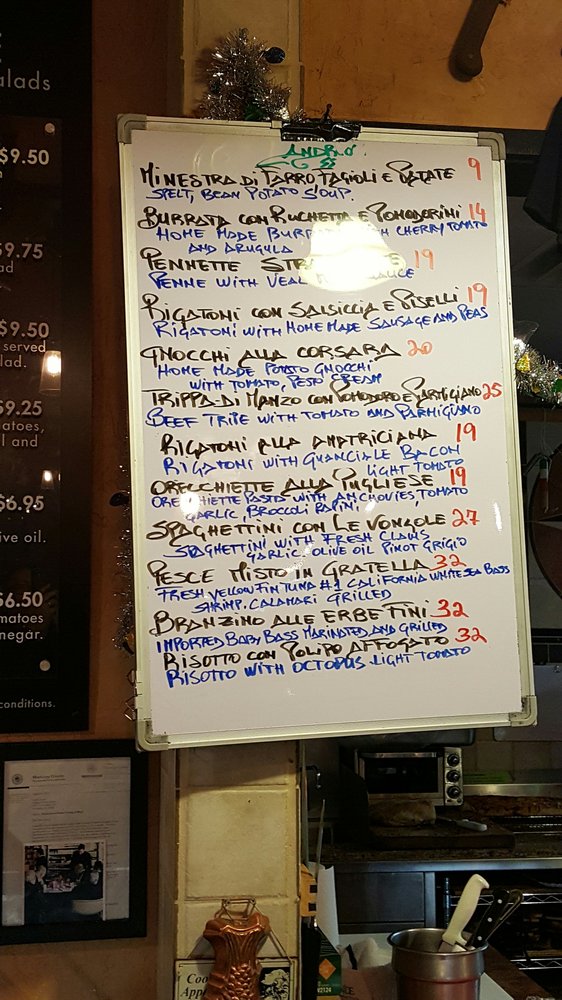 alads
$9.50
$9.75
ad
$9.50
served
lad.
$9.25
atoes,
l and
$6.95
ive oil.
$6.50
matoes
negar.
conditions.
MINESTRA DI FARRO FAGIOLI E PATATE 9
SPELT, BEAN POTATO SOUP.
BURRATA CON RUCHETTA E POMODORINI 14
HOME MADE BURR CHERRY TOMATO
AND ARUGULA
PENNETTE 19
PENNE WITH VEAL SAUCE
RIGATONI CON SALSICCIA E PISELLI 19
RIGATONI WITH HOME MADE SAUSAGE AND PEAS
GNOCCHI ALLA CORSARA 20
HOME MADE POTATO GNOCCHI
WITH TOMATO, PESTO CREAM
TRIPPA DI MANZO CON POMODORO E PARMIGIANO 25
BEEF TRIPE WITH TOMATO AND PARMIGIANO
RIGATONI ALLA AMATRICIANA 19
RIGATONI WITH GUANCIALE BACON
LIGHT TOMATO
ORECCHIETTE ALLA PUGLIESE 19
ORECCHIETTE PASTA WITH ANCHOVIES, TOMATO
GARLIC, BROCCOLI RAPINI
SPAGHETTINI CON LE VONGOLE 27
SPAGHETTINI WITH FRESH CLAMS
GARLIC. OLIVE OIL PINOT GRIGIO
PESCE MISTO IN GRATELLA 32
FRESH YELLOW FIN TUNA #1 CALIFORNIA WHITE SEA BASS
SHRIMP. CALAMARI GRILLED
BRANZINO ALLE ERBE FINI 32
IMPORTED BABY BASS MARINATED AND GRILLED
RISOTTO CON POLIPO AFFOGATO 32
RISOTTO WITH OCTOPUS. LIGHT TOMATO